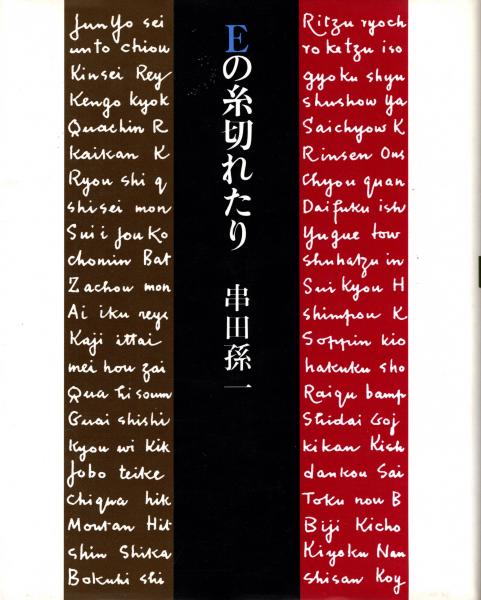 Eの糸切れたり
串田孫一
Jun Yo sei
unto chiou
Kinsei Rey
Kengo kyok
Quachin R
Kaikan K
Ryou shi q
shisei mon
Sui i jou Ko
chomin Bat
Zachou mon
Ai iku reye
Kaji ittai
mei hou zai
Qua hi soum
Guai shishi
Kyou wi Kik
Jobo teike
chiqua hik
Moutan Hit
shin Shika
Bokuhi shi
Ritzu ryoch
ro katzu iso
gyoku shyu
shushow ya
Saichyow K
Rinsen Ous
Chyou quan
Daifuku ish
yugue tow
shuhatzu in
Sui Kyou H
shimpou K
Soppin kio
hakuku sho
Raiqu bamp
Shidai Goj
kikan Kish
dankou Sai
Toku nou B
Biji Kicho
Kiyoku Nan
shisan Koy